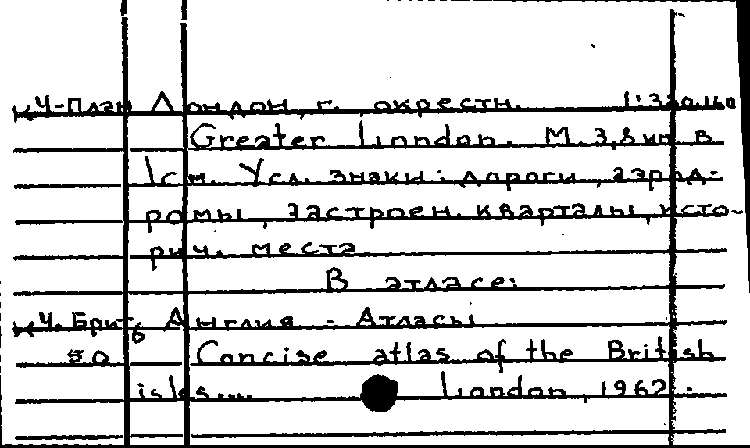 Ц4-План Лондон, г. окрестн.
Greater London. М. 3,8 км в
1 см. Усл. знаки: дороги, аэрод-
ромы, застроен. кварталы, исто-
рич. места
В атласе:
Ц4. Брит. Англия - Атласы
Concise atlas of the British
isles.... London, 1962.